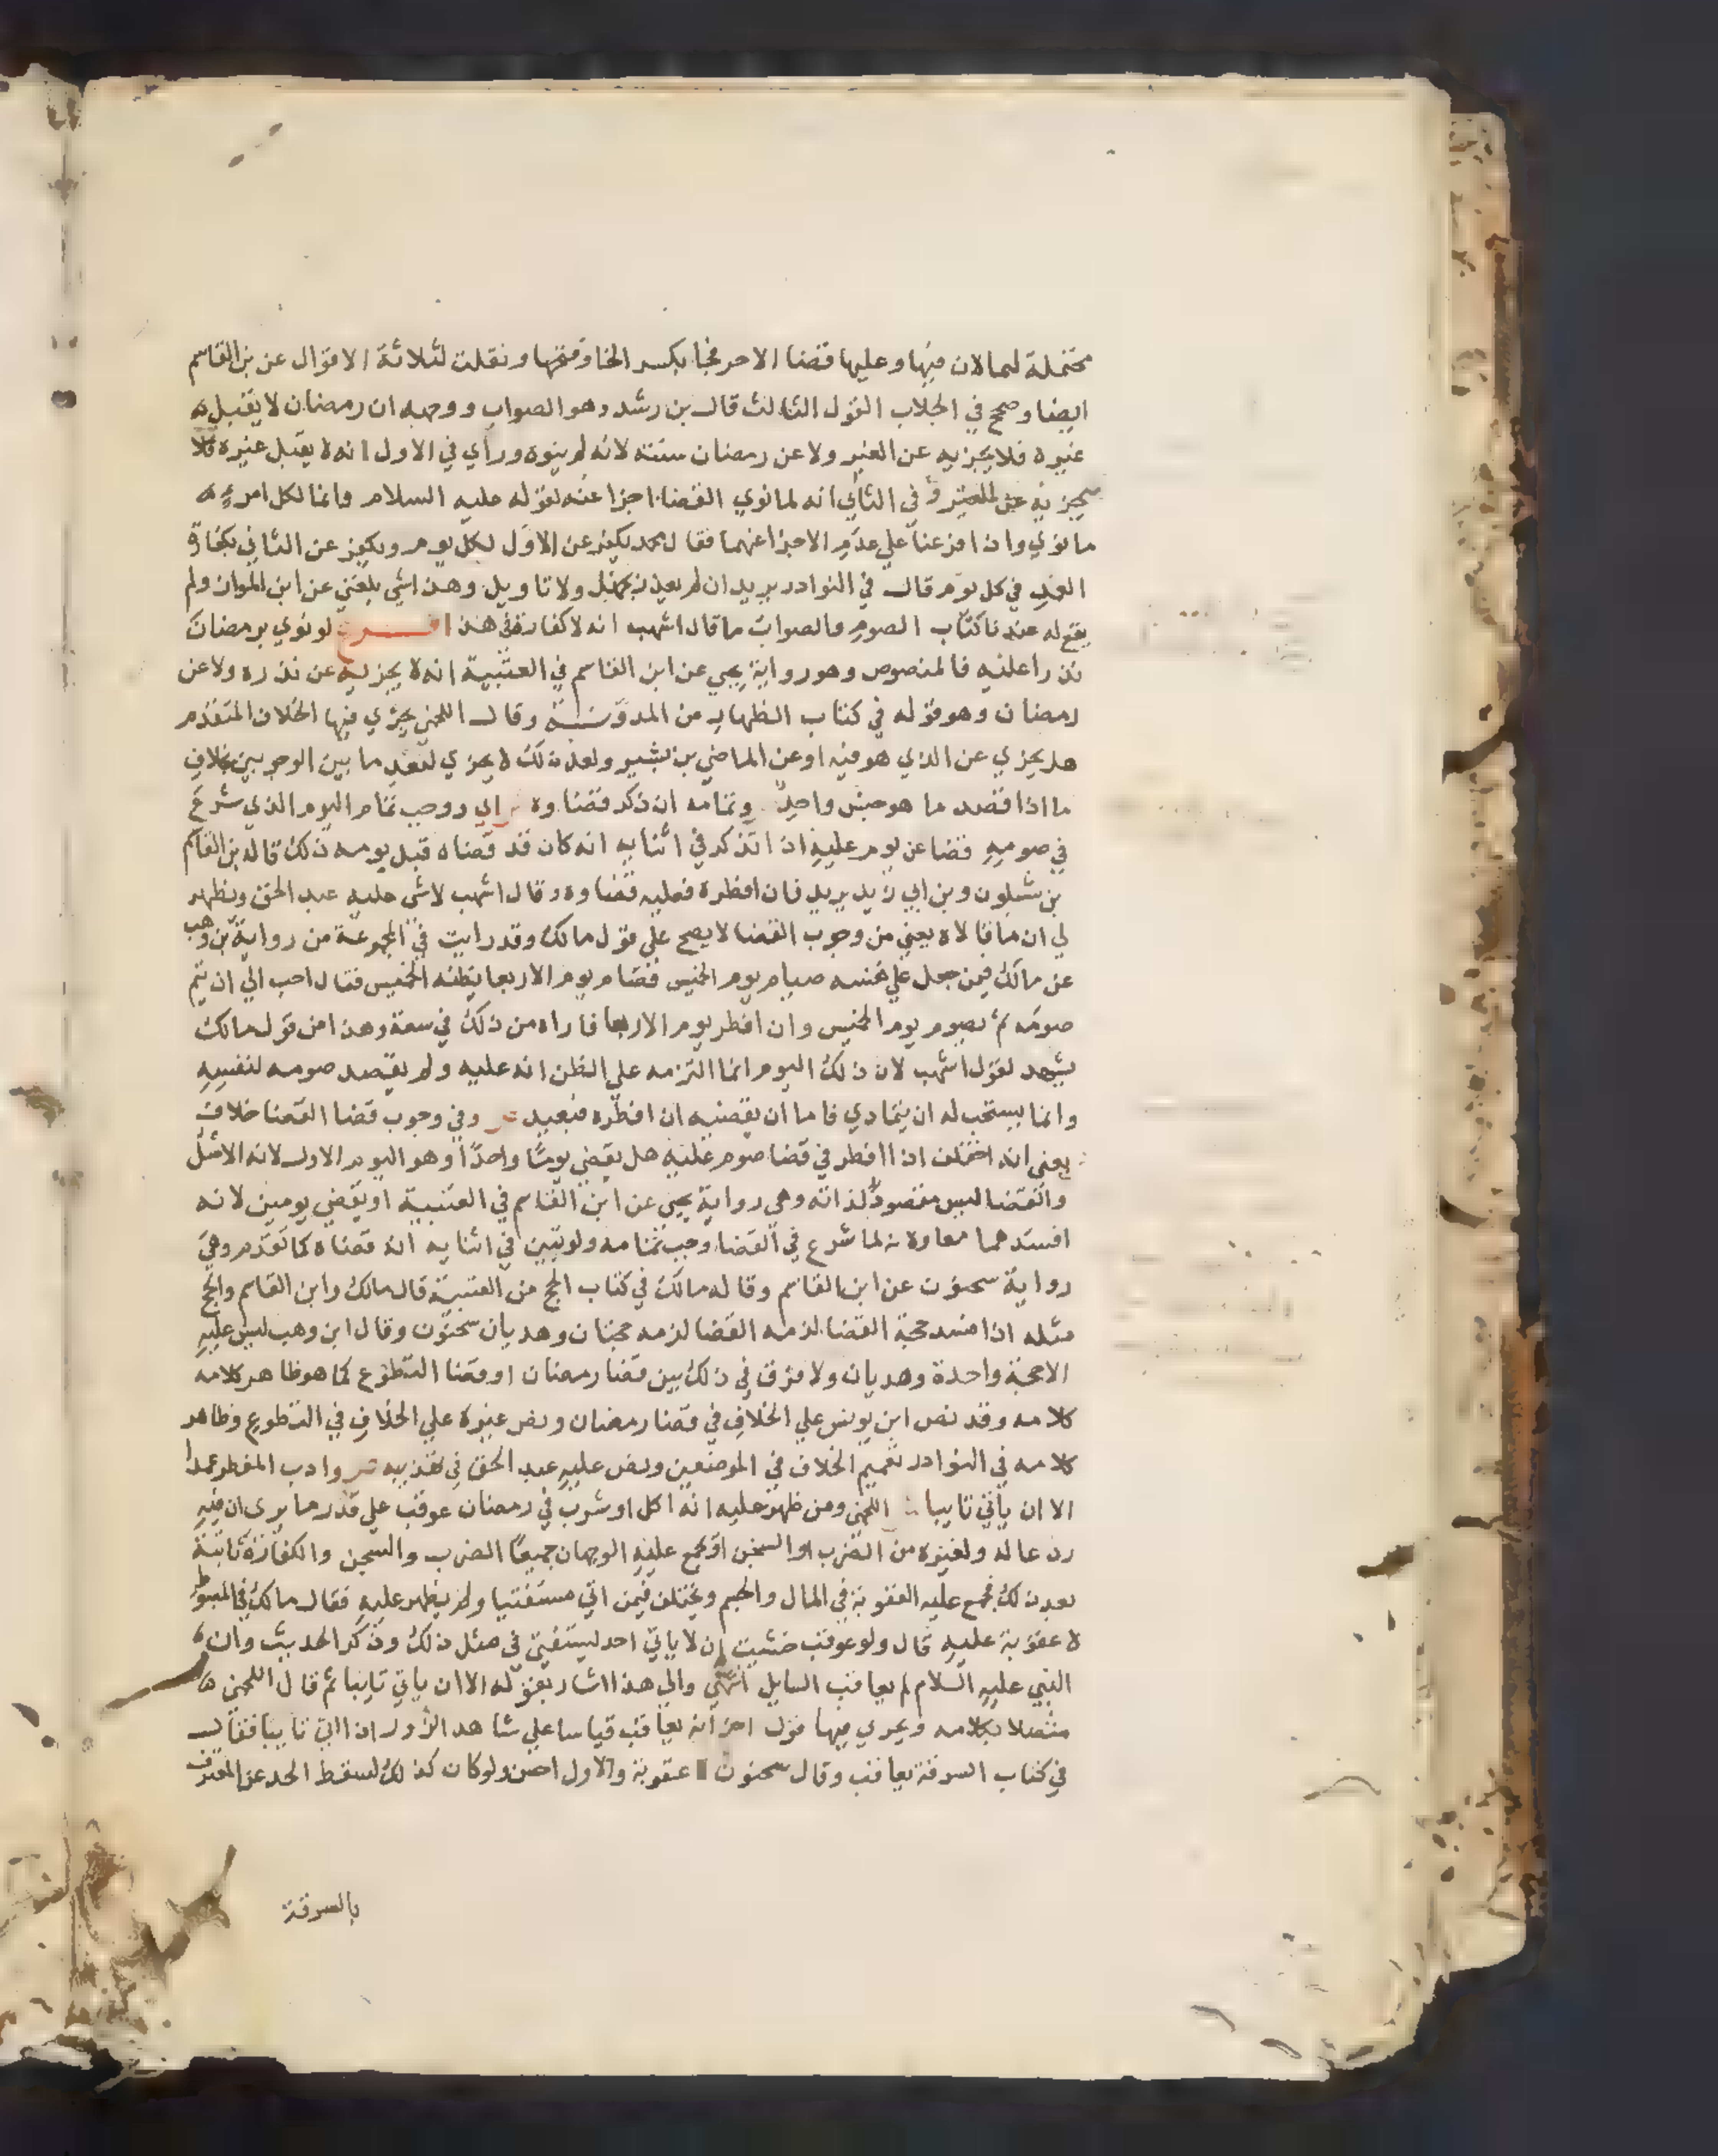 محتملة لهما لان فيها وعليها قضا الاخر فجا بكسر الخا وفتحها ونقلت لثلاثة الاقوال عن بن القاسم
ايضا وصحح في الجلاب القول الثالث قال بن رشد وهو الصواب ووجهه ان رمضان لا يقبل
غيره فلا يجزيه عن الغير ولا عن رمضان سنته لانه لم ينوه وراي في الاول انه لا يقبل غيره فلا
يجزيه عن الغير و في الثاني انه لما نوي القضا اجزا عنه لقوله عليه السلام وانما لكل امرء
ما نوي واذا فرعنا علي عدم الاجزا عنهما فقال محمد يكفر عن الاول لكل يوم ويكفر عن الثاني بكفارة
العمد في كل يوم قال في النوادر يريد ان لم يعذر بجهل ولا تاويل وهذا شي بلغني عن ابن المواز ولم
يقع له عندنا كتاب الصوم والصواب ما قال اشهب انه لا كفارة في هذا فرع لو نوي برمضان
نذرا عليه فالمنصوص وهو رواية يحي عن ابن القاسم في العتبية انه لا يجزيه عن نذره ولا عن
رمضان وهو قوله في كتاب الظهار من المدونة وقال اللخمي يجزي فيها الخلاف المتقدم
هل يجزي عن الذي هو فيه او عن الماضي بن بشير ولعل ذلك لا يجزي لبعد ما بين الوجوبين بخلاف
ما اذا قصد ما هو جنس واحد وتمامه ان ذكر قضاوه اي ووجب تمام اليوم الذي شرع
في صومه قضا عن يوم عليه اذا تذكر في اثنايه انه كان قد قضاه قبل يومه ذلك قاله بن القاسم
بن شبلون وبن ابي زيد يريد فان افطره فعليه قضاوه وقال اشهب لاشي عليه عبد الحق ويظهر
لي ان ما قالاه يعني من وجوب القضا لا يصح علي قول مالك وقد رايت في المجموعة من رواية بن وهب
عن مالك فيمن جعل علي نفسه صيام يوم الخميس فصام يوم الاربعا يظنه الخميس فقال احب الي ان يتم
صومه ثم يصوم يوم الخميس وان افطر يوم الاربعا فاراه من ذلك في سعة وهذا من قول مالك
يشهد لقول اشهب لان ذلك اليوم انما التزمه علي الظن انه عليه ولم يقصد صومه لنفسه
وانما يستحب له ان يتمادي فاما ان يقضيه ان افطره فبعيد وفي وجوب قضا القضا خلاف
يعني انه اختلف اذا افطر في قضا صوم عليه هل يقضي يوما واحدا وهو اليوم الاول لانه الاصل
والقضا ليس مقصودا لذاته وهي رواية يحي عن ابن القاسم في العتبية او يقضي يومين لانه
افسدهما معا ولانه لما شرع في القضا وجب تمامه ولو تبين في اثنايه انه قضاه كما تقدم وهي
رواية سحنون عن ابن القاسم وقاله مالك في كتاب الحج من العتبية قال مالك وابن القاسم والحج
مثله اذا فسد حجة القضا لزمه القضا لزمه حجتان وهديان سحنون وقال ابن وهب ليس عليه
الا حجة واحدة وهديان ولا فرق في ذلك بين قضا رمضان او قضا التطوع كما هو ظاهر كلامه
كلامه وقد نص ابن يونس علي الخلاف في قضا رمضان ونص غيره علي الخلاف في التطوع وظاهر
كلامه في النوادر تعميم الخلاف في الموضعين ونص عليه عبد الحق في تهذيبه وادب المفطر عمدا
الا ان ياتي تايبا اللخمي ومن ظهر عليه انه اكل او شرب في رمضان عوقب علي قدر ما يري ان فيه
ردعا له ولغيره من الضرب او السجن او يجمع عليه الوجهان جميعا الضرب والسجن والكفارة ثابتة
بعد ذلك فيجمع عليه العقوبة في المال والجسم ويختلف فيمن اتي مستفتيا ولم يظهر عليه فقال مالك في المبسوط
لا عقوبة عليه قال ولو عوقب خشيت ان لا ياتي احد ليستفتي في مثل ذلك وذكر الحديث وان
النبي عليه السلام لم يعاقب السايل انتهي والي هذا اشار بقوله الا ان ياتي تايبا ثم قال اللخمي
متصلا بكلامه ويجري فيها قول اخر انه يعاقب قياسا علي شاهد الزور اذا اتي تايبا فقال
في كتاب السرقة يعاقب وقال سحنون لا عقوبة والاول احسن ولو كان كذلك لسقط الحد عن المعترف
بالسرقة